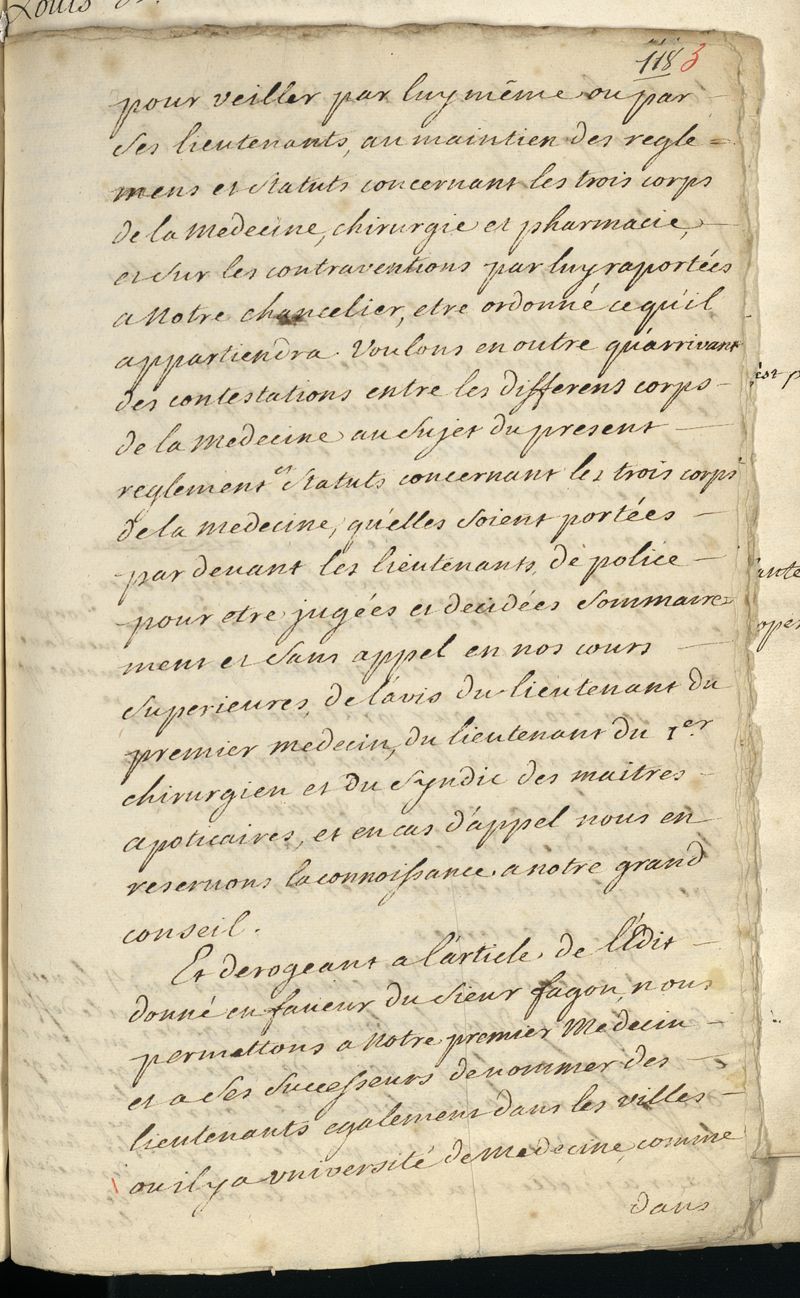 Louis
118 3
pour veiller par luy même ou par
ses lieutenants, au maintien des regle=
mens et statuts concernant les trois corps
de la medecine, chirurgie et pharmacie,
et sur les contraventions par luy raportées
a notre chancelier, etre ordonné ce qu'il
appartiendra. Voulons en outre qu'arrivant
des contestations entre les differens corps
de la medecine au sujet du present
reglement et statuts concernant les trois corps
de la medecine, qu'elles soient portées
par devant les lieutenants de police
pour etre jugées et decidées sommaire=
ment et sans appel en nos cours
superieures, de l'avis du lieutenant du
premier medecin, du lieutenant du 1er
chirurgien et du syndic des maitres
apoticaires, et en cas d'appel nous en
reservons la connoissance a notre grand
conseil.
Et derogeant a l'article de l'Edit
donné en faveur du sieur fagon, nous
permettons a notre premier Medecin
et a ses successeurs de nommer des
lieutenants egalement dans les villes
ou il y a université de Medecine, comme
dans